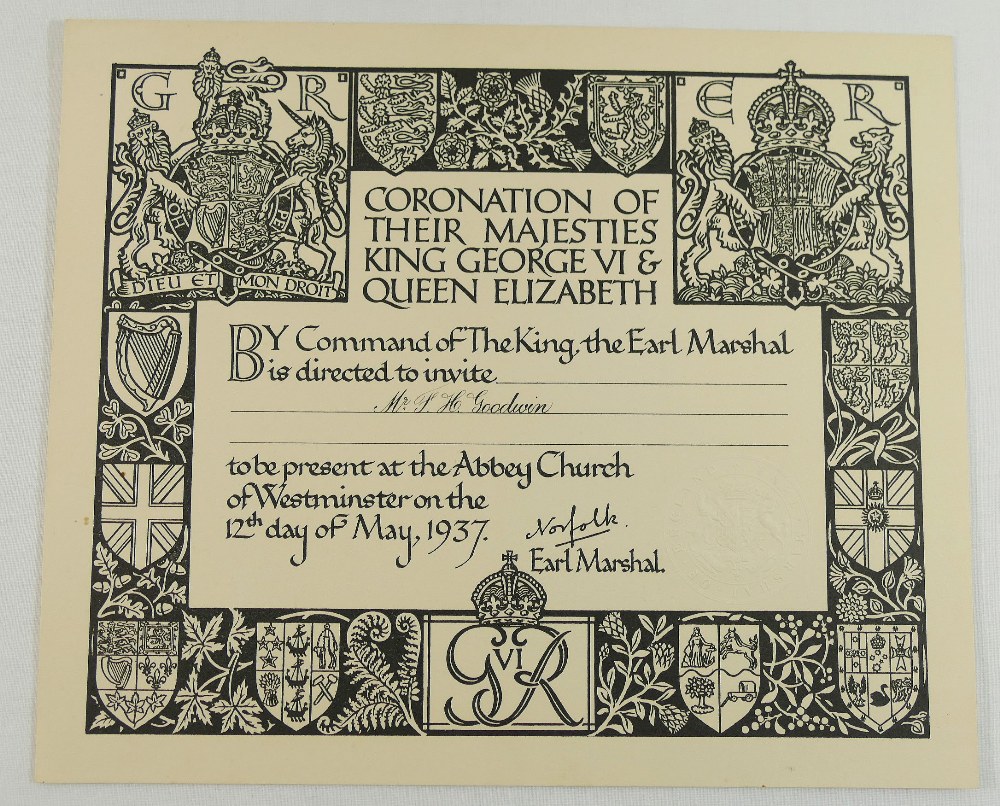 G R
E R
DIEU ET MON DROIT
CORONATION OF
THEIR MAJESTIES
KING GEORGE VI &
QUEEN ELIZABETH
BY Command of The King, the Earl Marshal
is directed to invite
Mr. H. Goodwin
to be present at the Abbey Church
of Westminster on the
12th day of May, 1937.
Norfolk.
Earl Marshal.
G VI R